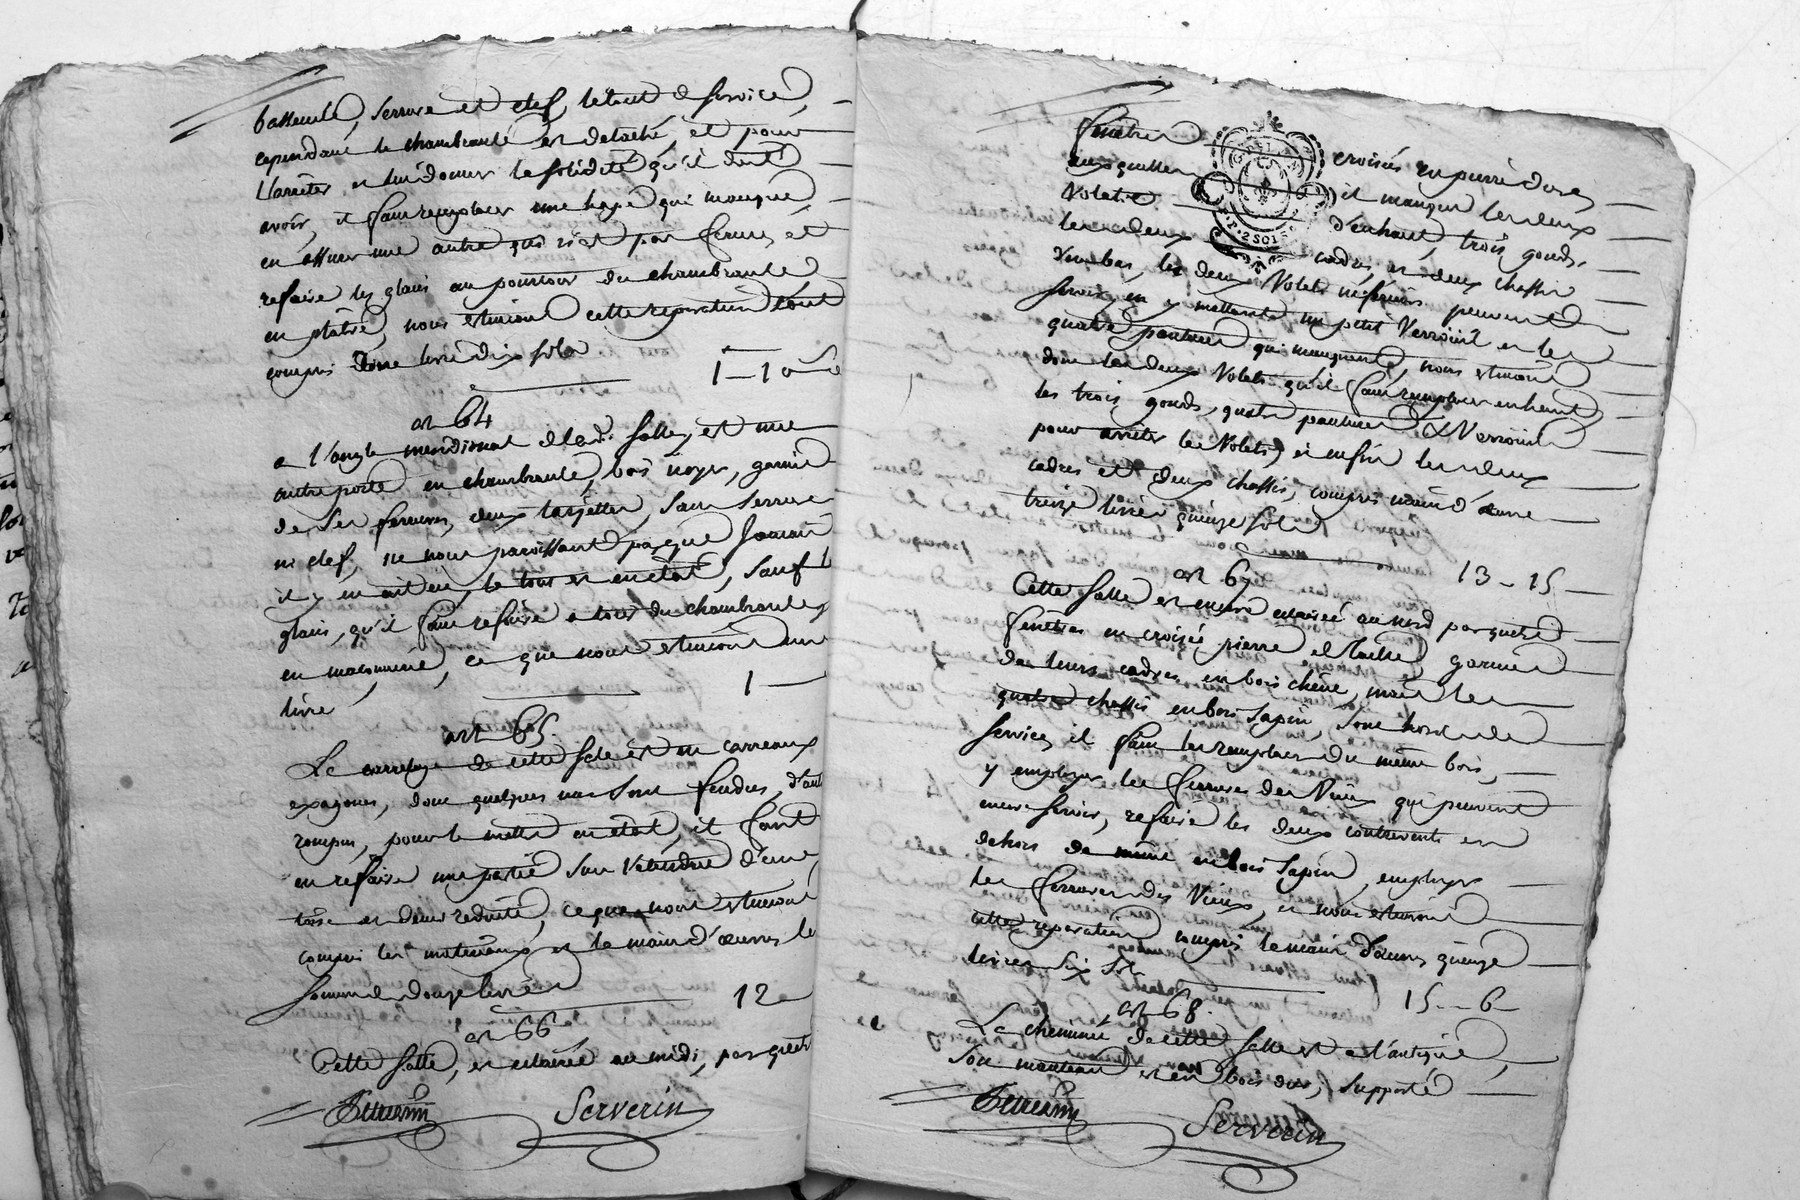 battente, serrure et clef, le tout de service,
cependant le chambranle est detaché, et pour
l'arrêter et lui donner la solidité qu'il doit
avoir, il faut remplacer une hape qui manque,
en assurer une autre qui n'est pas ferme, et
refaire les glacis au pourtour du chambranle
en plâtre, nous estimons cette reparation tout
compris une livre dix sols
1 - 10 s
art 64
a l'angle meridional de lad. salle, est une
autre porte en chambranle, bois noyer, garnie
de ses ferrures, deux targettes, sans serrure
ni clef, ne nous paroissant pas que jamais
il y en ait eu, le tout est en état, sauf l
glacis, qu'il faut refaire a tour du chambranle,
en maconnerie, ce que nous estimons une
livre
1 -
art 65.
Le carrelage de cette salle est en carreaux
exagones, dont quelques uns sont fendus, d'autr
rompus, pour le mettre en état, il faut
en refaire une partie sur l'étendue d'une
toise et demi reduite, ce que nous estimons
compris les materiaux et la main d'œuvre la
somme de douze livres
12
art 66
Cette salle, est eclairée au midi, par quatr
Serverin
fenêtres croisées en pierre dure,
auxquelles il manque les deux
volets d'enhaut, trois gonds,
les deux cadres, et deux chassis
d'en bas, les deux volets inferieurs peuvent
servir, en y mettant un petit verrouil et les
quatre pantures qui manquent, nous estimons
donc les deux volets qu'il faut remplacer enhaut,
les trois gonds, quatre pantures & verrouil
pour arrêter les volets, et enfin les deux
cadres et deux chassis, compris main d'œuvre
treize livres quinze sols
13 - 15
art 67
Cette salle est encore eclairée au nord par quatre
fenêtres en croisée pierre de taille, garnies
de leurs cadres en bois chêne, mais les
quatre chassis en bois sapin, sont hors de
service, il faut les remplacer du même bois,
y employer les ferrures des vieux qui peuvent
encore servir, refaire les deux contrevents en
dehors de même en bois sapin, employer
les ferrures des vieux, et nous estimons
cette reparation compris la main d'œuvre, quinze
livres six sols
15 - 6
art 68.
La cheminée de cette salle est a l'antique,
son manteau est en bois dur, supporté
Serverin
G. DE LAN
P. 2 SOLS